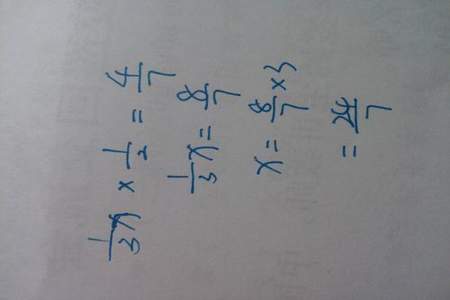 1/3 x × 1/2 = 4/7
1/3 x = 8/7
x = 8/7 × 3
= 24/7